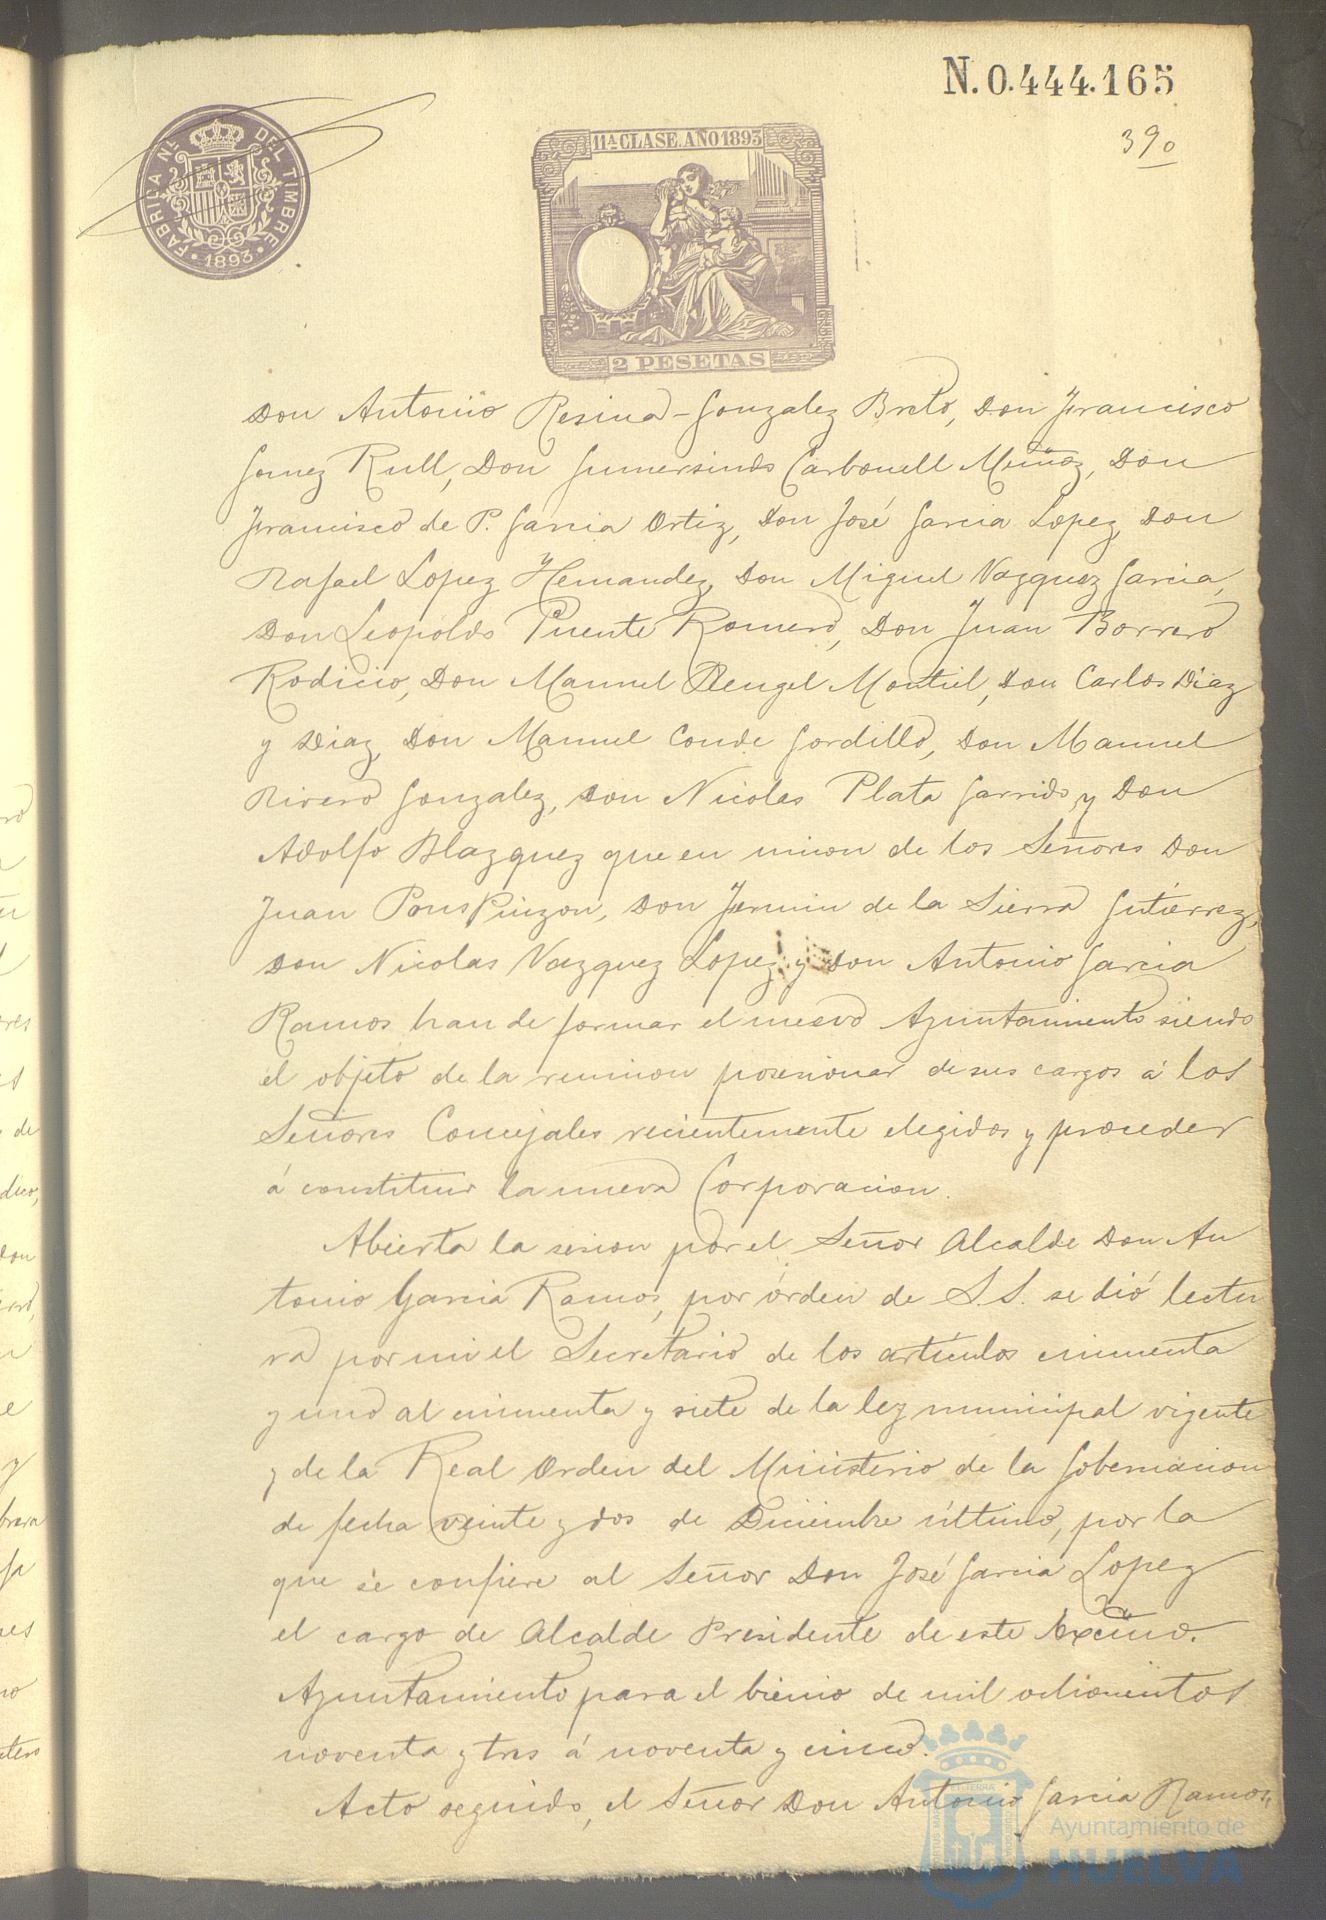 N. 0.444.165
39o
FABRICA Nl. DEL TIMBRE
1893
11A CLASE. AÑO 1893
2 PESETAS
Don Antonio Resina-Gonzalez Breto, Don Francisco
Gomez Rull, Don Gumersindo Carbonell Muñoz, Don
Francisco de P. Garcia Ortiz, Don José Garcia Lopez, Don
Rafael Lopez Hernandez, Don Miguel Vazquez Garcia,
Don Leopoldo Puente Romero, Don Juan Borrero
Rodicio, Don Manuel Rengel Montiel, Don Carlos Diaz
y Diaz, Don Manuel Conde Gordillo, Don Manuel
Rivero Gonzalez, Don Nicolas Plata Garrido, y Don
Adolfo Blazquez que en union de los Señores Don
Juan Pons Pinzon, Don Fermin de la Sierra Gutierrez,
Don Nicolas Vazquez Lopez y Don Antonio Garcia
Ramos han de formar el nuevo Ayuntamiento siendo
el objeto de la reunion posesionar de sus cargos á los
Señores Concejales recientemente elegidos y proceder
á constituir la nueva Corporacion.
Abierta la sesion por el Señor Alcalde Don An
tonio Garcia Ramos, por órden de S.S. se dió lectu
ra por mi el Secretario de los artículos cincuenta
y uno al cincuenta y siete de la ley municipal vigente
y de la Real Orden del Ministerio de la Gobernacion
de fecha veinte y dos de Diciembre último, por la
que se confiere al Señor Don José Garcia Lopez
el cargo de Alcalde Presidente de este Excmo.
Ayuntamiento para el bienio de mil ochocientos
noventa y tres á noventa y cinco.
Acto seguido, el Señor Don Antonio Garcia Ramos,
Ayuntamiento de
HUELVA